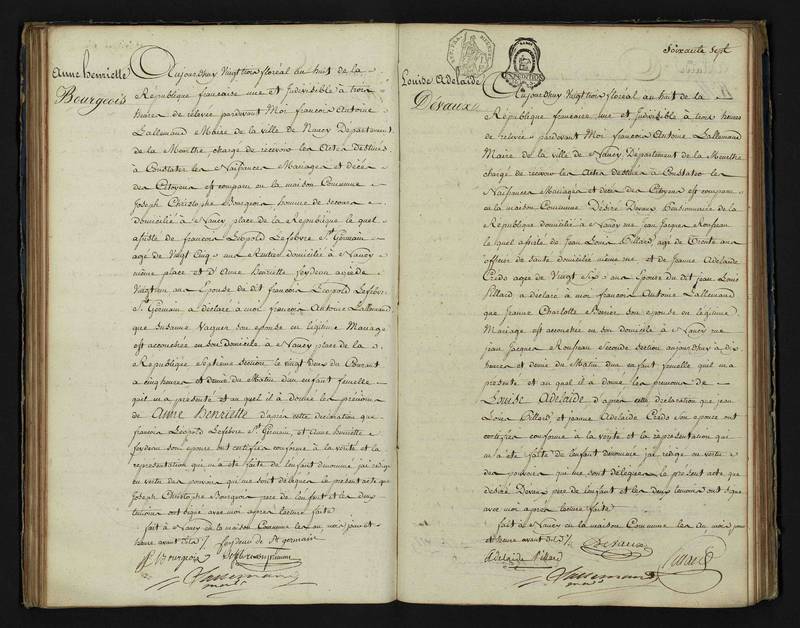 Anne henriette
Bourgeois
Aujourdhuy Vingt trois floréal an huit de la
République francaise une et Indivisible à trois
heures de relevee pardevant Moi françois Antoine
Lallemand Maire de la ville de Nancy Departement
de la Meurthe, chargé de recevoir les Actes Destinés
à Constater les Naissances Mariages et décès
des Citoyens est comparu en la maison Commune
Joseph Christophe Bourgeois homme de
domicilié à Nancy place de la République le quel
assisté de francois Leopold Lefebvre St. Germain
agé de Vingt Cinq ans Rentier domicilié à Nancy
même place et d'Anne henriette feydeau agée de
Vingt un ans Epouse du dit françois Leopold Lefebvre
St. Germain a déclaré à moi françois Antoine Lallemand
que Susanne Vaquer son epouse en légitime Mariage
est accouchée en son Domicile à Nancy place de la
République Septieme section le vingt deux du Courant
a cinq heures et demie du Matin d'un enfant femelle
quil m'a présenté et au quel il a donné les prénoms
de Anne Henriette d'après cette déclaration que
françois Leopold Lefebvre St. Germain, et Anne henriette
feydeau son epouse ont certifiée conforme à la vérité et la
représentation qui m'a été faite de lenfant denommé jai rédigé
en vertu des pouvoirs qui me sont délégués le présent acte que
Joseph Christophe Bourgeois pere de lenfant et les deux
temoins ont signé avec moi après lecture faite
fait à Nancy en la maison Commune les an mois jour et
heure avant dits ./. feydeau de St germain
Bourgeois
Lallemand
maire
Soixante Sept
Louise Adelaïde
Devaux
Aujourdhuy Vingt trois floréal an huit de la
République francaise une et Indivisible à trois heures
de relevee pardevant Moi françois Antoine Lallemand
Maire de la ville de Nancy, Département de la Meurthe
chargé de recevoir les Actes destinés à Constater les
Naissances Mariages et décès des Citoyens est comparu
en la maison Commune Désiré Devaux Pensionnaire de la
République domicilié à Nancy rue jean Jacques Rousseau
le quel assisté de Jean Louis Pillard, agé de Trente ans
officier de santé domicilié même rue et de Jeanne Adelaide
Crédo agée de Vingt Six ans Epouse du dit jean Louis
Pillard a déclaré à moi françois Antoine Lallemand
que Jeanne Charlotte son epouse en légitime
Mariage est accouchée en son domicile à Nancy rue
jean Jacques Rousseau Seconde section aujourdhuy à dix
heures et demie du Matin d'un enfant femelle quil m'a
présenté et au quel il a donné les prenoms de
Louise Adelaide d'après cette déclaration que jean
Louis Pillard, et jeanne Adelaide Crédo son epouse ont
certifiée conforme à la vérité et la représentation qui
m'a été faite de lenfant denommé jai redigé en vertu
des pouvoirs qui me sont délégués le présent acte que
désiré Devaux pere de lenfant et les deux temoins ont signé
avec moi après lecture faite
fait à Nancy en la maison Commune les an mois jour
et heure avant dits ./. Devaux
Adelaïde Pillard
Lallemand
maire